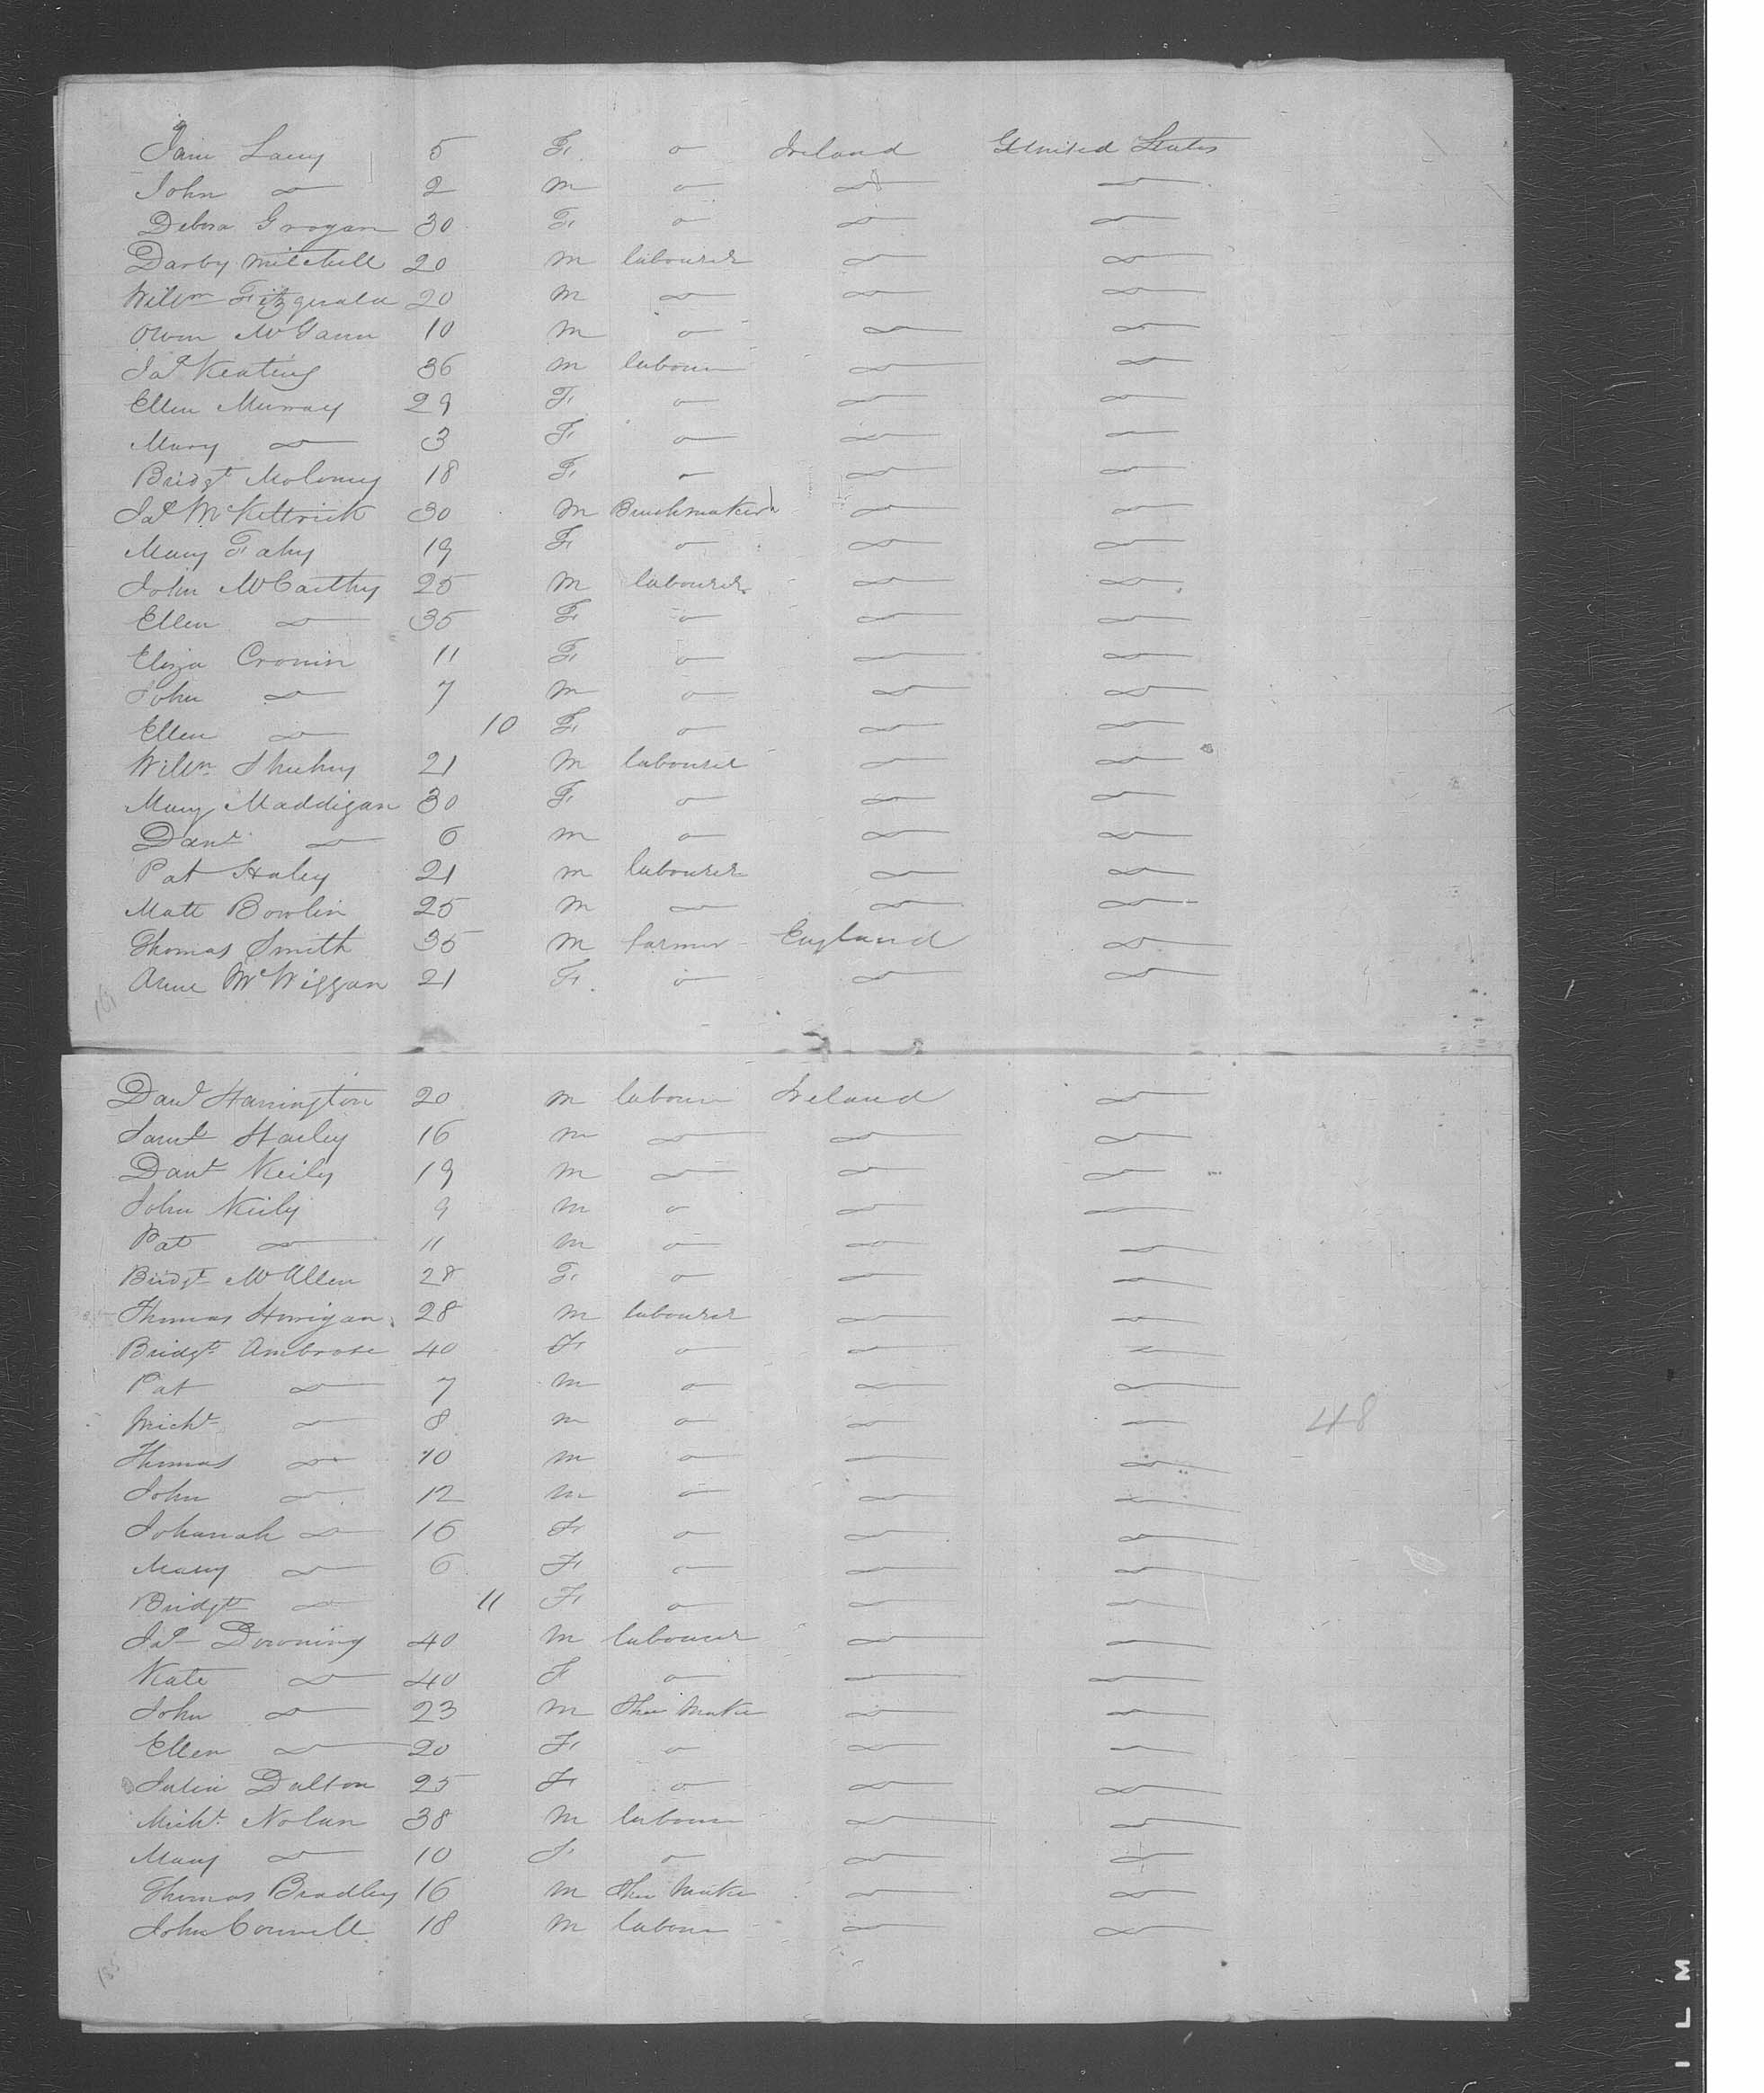 Jane Lacey 5 F. o Ireland United States
John do 2 m o do do
Debora Grogan 30 F. o do do
Darby Mitchell 20 m labourer do do
Willm Fitzgerald 20 m do do do
Owen McGann 10 m o do do
Jas Keating 36 m labourer do do
Ellen Murray 29 F. o do do
Mary do 3 F. o do do
Bridgt Moloney 18 F. o do do
Jas McKettrick 30 m Brushmaker do do
Mary Fahy 19 F. o do do
John McCarthy 25 m labourer do do
Ellen do 35 F. o do do
Eliza Cronin 11 F. o do do
John do 7 m o do do
Ellen do 10 F. o do do
Willm Sheehy 21 m labourer do do
Mary Maddigan 30 F. o do do
Danl do 6 m o do do
Pat Haley 21 m labourer do do
Matt Bowlin 25 m do do do
Thomas Smith 35 m farmer England do
Anne McWiggan 21 F. o do do
Danl Harrington 20 m labourer Ireland do
Saml Harley 16 m do do do
Danl Keily 19 m do do do
John Keily 9 m o do do
Pat do 11 m o do do
Bridgt McAllen 28 F. o do do
Thomas Horrigan 28 m labourer do do
Bridgt Ambrose 40 F. o do do
Pat do 7 m o do do
Michl do 8 m o do do 48
Thomas do 10 m o do do
John do 12 m o do do
Johanah do 16 F. o do do
Mary do 6 F. o do do
Bridgt do 11 F. o do do
Jas Downing 40 m labourer do do
Kate do 40 F o do do
John do 23 m Shoe Maker do do
Ellen do 20 F. o do do
Julia Dalton 25 F. o do do
Michl Nolan 38 m labourer do do
Mary do 10 F. o do do
Thomas Bradley 16 m Shoe Maker do do
John Connell 18 m labourer do do
I L M